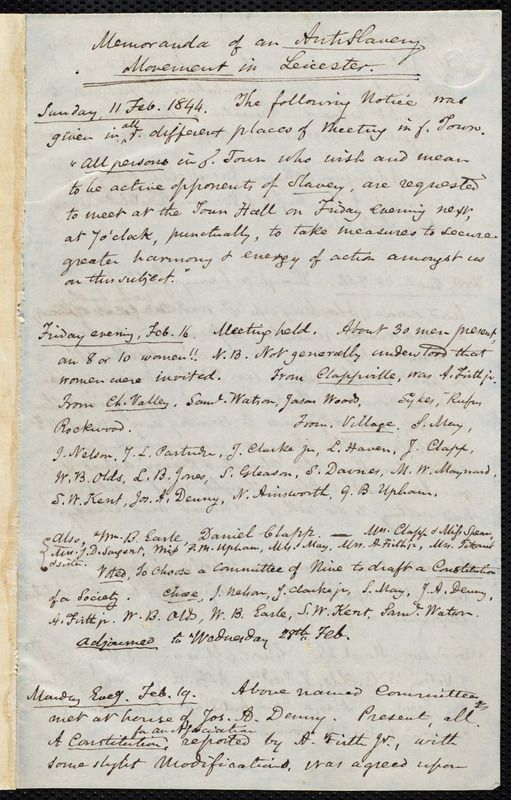 Memoranda of an AntiSlavery
Movement in Leicester.
Sunday, 11 Feb. 1844. The following Notice was
given in all ye. different places of Meeting in ye. Town.
"All persons in ye. Town who wish and mean
to be active opponents of Slavery, are requested
to meet at the Town Hall on Friday evening next,
at 7 o'clock, punctually, to take measures to secure
greater harmony & energy of action amongst us
on this subject."
Friday evening, Feb. 16. Meeting held. About 30 men present,
an 8 or 10 women!! N.B. Not generally understood that
women were invited. From Clappville, was A. Firth jr.
From Ch. Valley, Saml. Watson, Jason Woods, Sykes, Rufus
Rockwood. From Village, S. May,
J. Nelson, J. L. Partridge, J. Clarke jr, L. Haven, J. Clapp,
W. B. Olds, L. B. Jones, S. Gleason, S. Dawner, M. W. Maynard,
S. W. Kent, Jos. A. Denny, N. Ainsworth, G. B. Upham.
Also, Wm. B. Earle, Daniel Clapp. — Mrs. Clapp & Miss Spear,
Mrs. J. D. Sargent, Miss P. M. Upham, Mrs. May, Mrs. A Firth jr, Mrs.
Voted, To choose a Committee of Nine to draft a Constitution
of a Society. Chose, J. Nelson, J. Clarke jr, S. May, J. A. Denny,
A. Firth jr. W. B. Olds, W. B. Earle, S. W. Kent, Saml. Watson.
Adjourned to Wednesday 28th Feb.
Monday Eveg. Feb. 19. Above named Committee
met at house of Jos. A. Denny. Present, all.
A Constitution for an Association, reported by A. Firth Jr., with
some slight modifications, was agreed upon